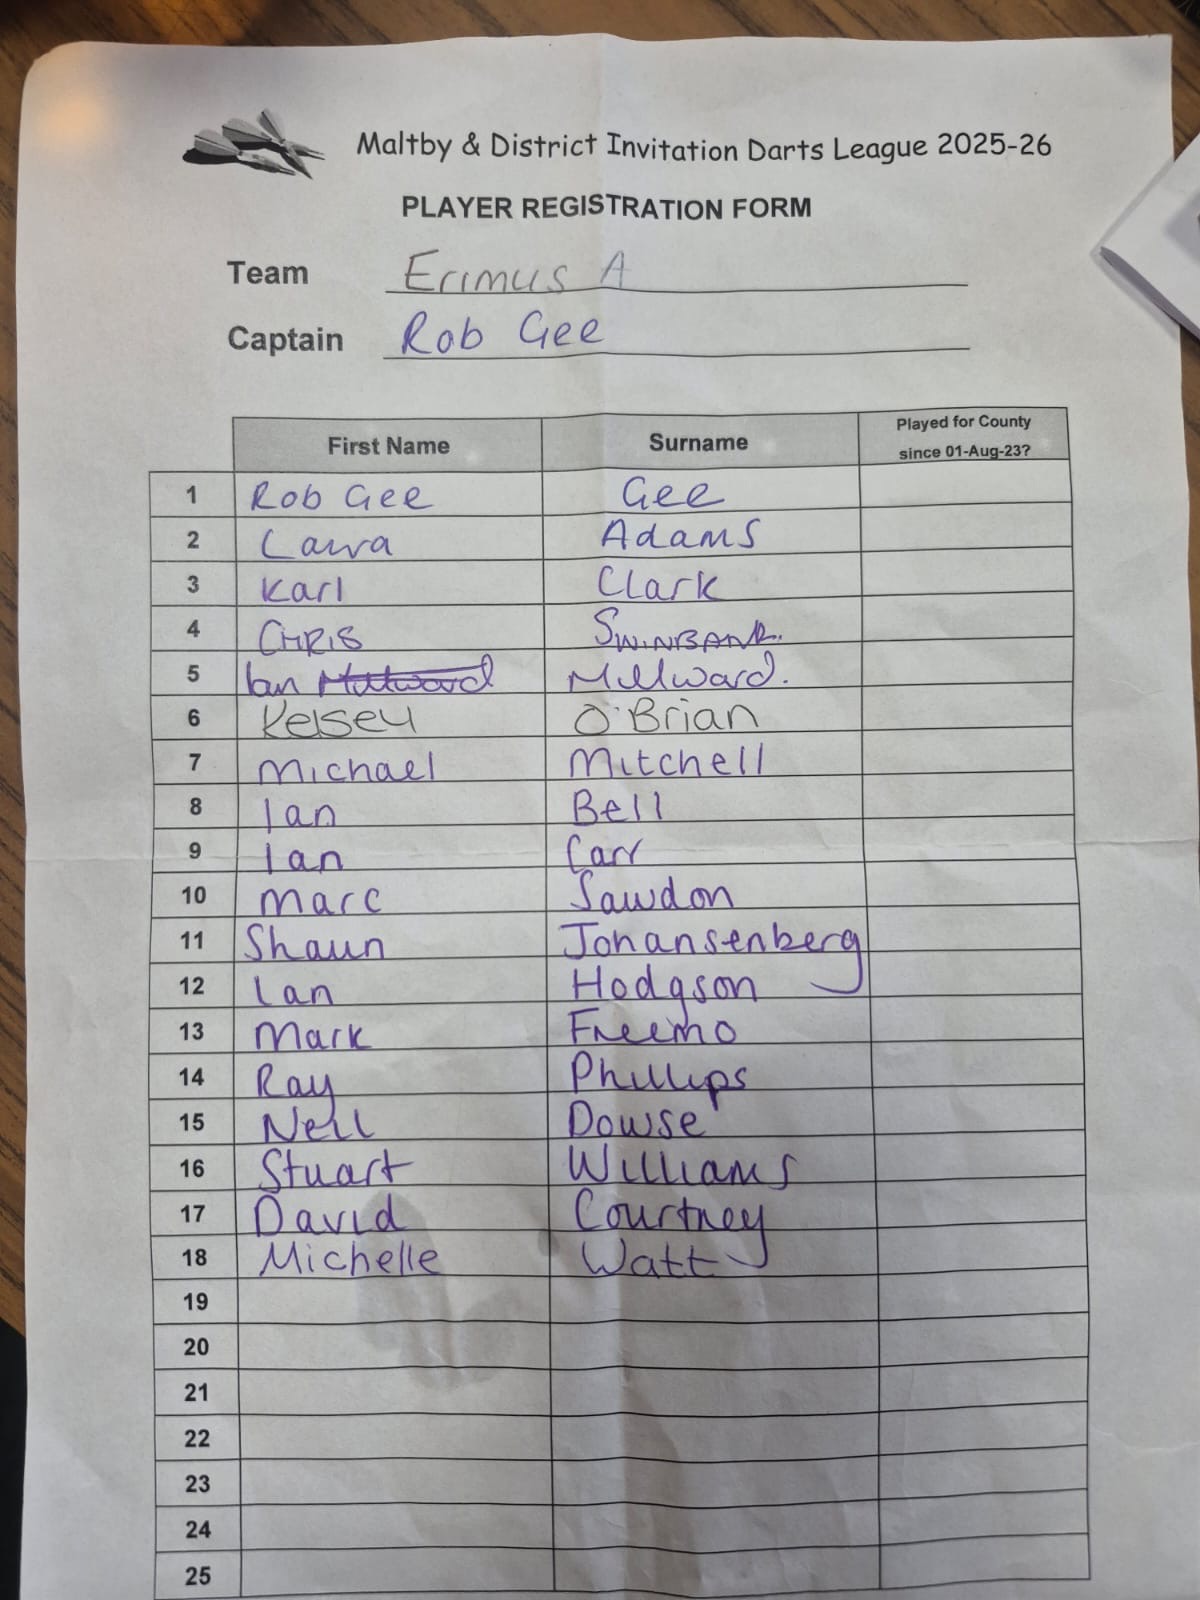 Maltby & District Invitation Darts League 2025-26
PLAYER REGISTRATION FORM
Team Erimus A
Captain Rob Gee
First Name Surname Played for County since 01-Aug-23?
1 Rob Gee Gee
2 Laura Adams
3 Karl Clark
4 CHRIS SWINBANK.
5 Ian Millward.
6 Kelsey O'Brian
7 Michael Mitchell
8 Ian Bell
9 Ian Carr
10 Marc Sawdon
11 Shaun Johansenberg
12 Ian Hodgson
13 Mark Freemo
14 Ray Phillips
15 Neil Dowse
16 Stuart Williams
17 David Courtney
18 Michelle Watt
19
20
21
22
23
24
25